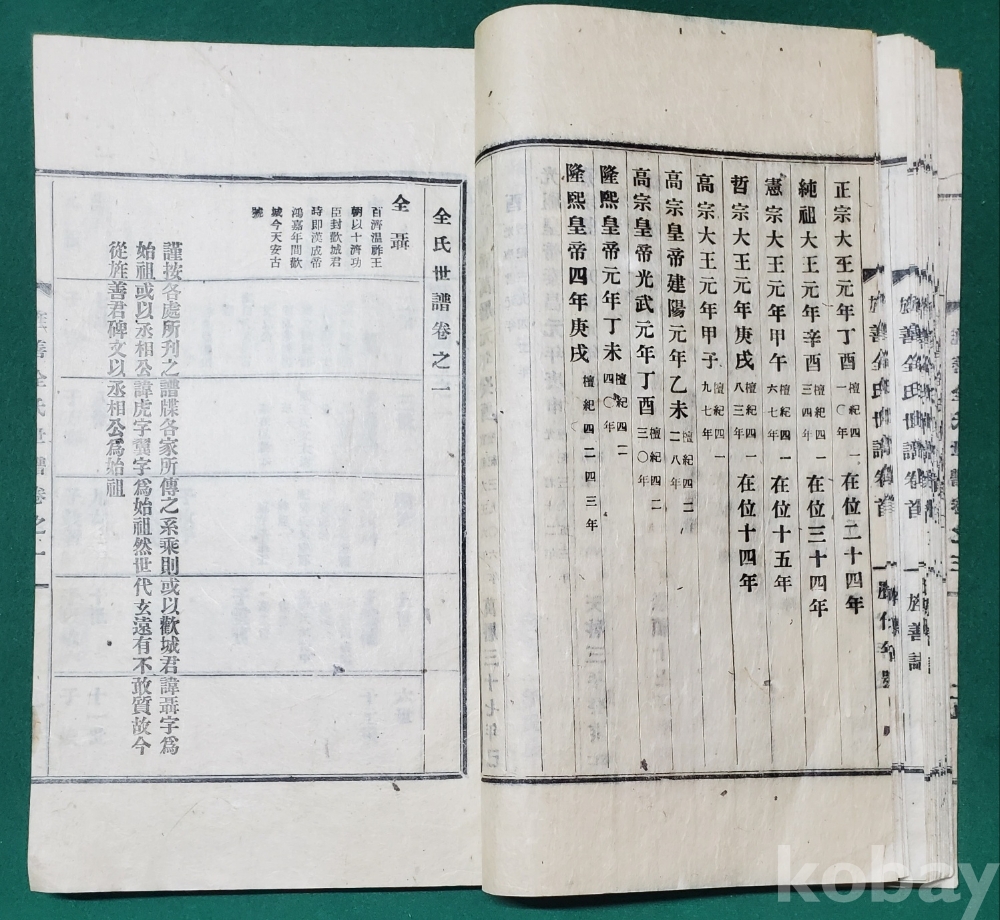 正宗大王元年丁酉 檀紀四一一〇年 在位二十四年
純祖大王元年辛酉 檀紀四一三四年 在位三十四年
憲宗大王元年甲午 檀紀四一六七年 在位十五年
哲宗大王元年庚戌 檀紀四一八三年 在位十四年
高宗大王元年甲子 檀紀四一九七年
高宗皇帝建陽元年乙未 檀紀四二二八年
高宗皇帝光武元年丁酉 檀紀四二三〇年
隆熙皇帝元年丁未 檀紀四二四〇年
隆熙皇帝四年庚戌 檀紀四二四三年
旌善全氏世譜卷首
全氏世譜卷之一
全聶
百濟溫祚王
朝以十濟功
臣封歡城君
時即漢成帝
鴻嘉年間歡
城今天安古
號
謹按各處所刊之譜牒各家所傳之系乘則或以歡城君諱聶字爲
始祖或以丞相公諱虎字翼字爲始祖然世代玄遠有不敢質故今
從旌善君碑文以丞相公爲始祖
kobay